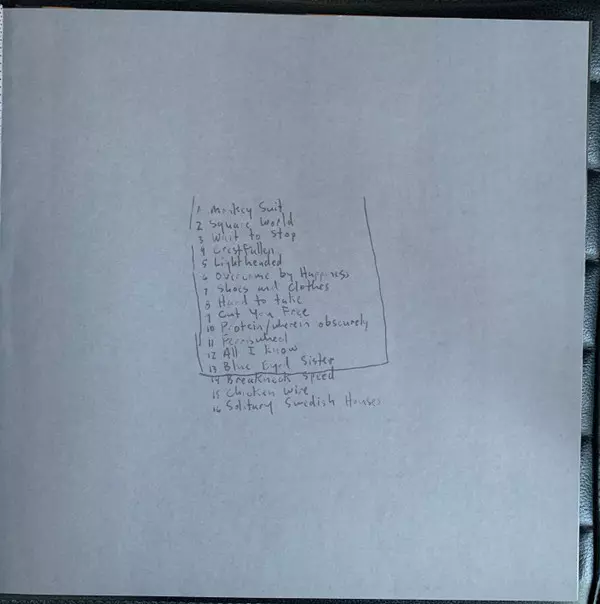 1 Monkey Suit
2 Square World
3 Wait to Stop
4 Crestfallen
5 Lightheaded
6 Overcome by Happiness
7 Shoes and Clothes
8 Hard to take
9 Cut You Free
10 Protein/wherein obscurely
11 Ferriswheel
12 All I know
13 Blue Eyed Sister
14 Breakneck Speed
15 Chicken Wire
16 Solitary Swedish Houses